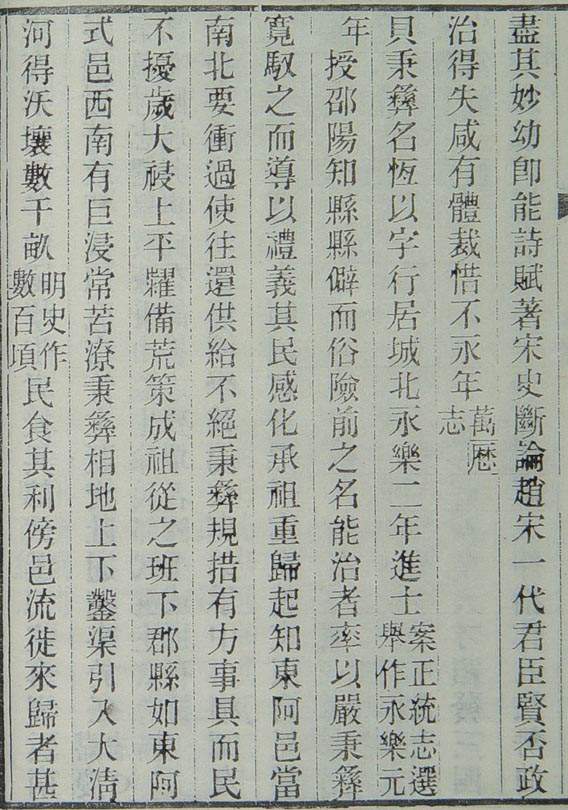 盡其妙幼卽能詩賦著宋史斷論趙宋一代君臣賢否政
治得失咸有體裁惜不永年萬曆志
貝秉彝名恆以字行居城北永樂二年進士案正統志選舉作永樂元
年授邵陽知縣縣僻而俗險前之名能治者率以嚴秉彝
寬馭之而導以禮義其民感化承祖重歸起知東阿邑當
南北要衝過使往還供給不絕秉彝規措有方事具而民
不擾歲大祲上平糴備荒策成祖從之班下郡縣如東阿
式邑西南有巨浸常苦潦秉彝相地上下鑿渠引入大淸
河得沃壤數千畝明史作數百頃民食其利傍邑流徙來歸者甚